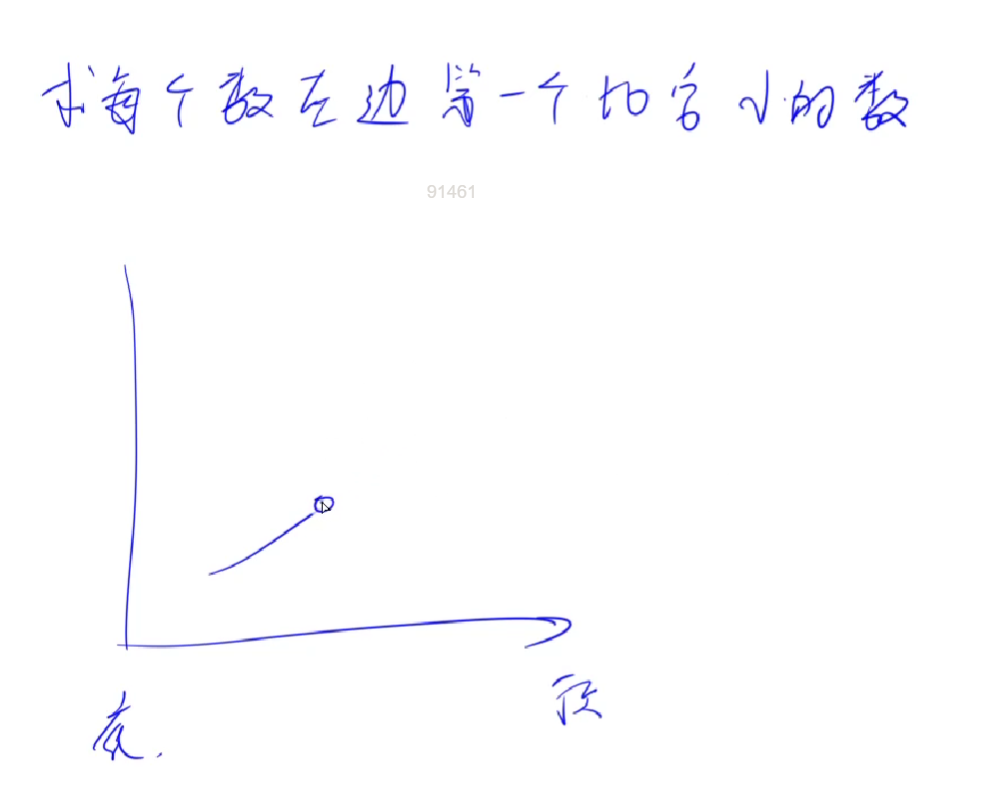 求每个数左边第一个比它小的数
91461
底.
顶